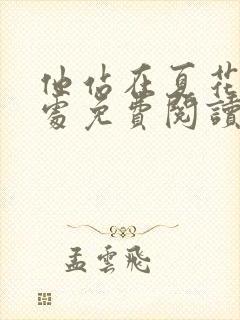 他站在夏花
處免費閱讀
孟雲飛